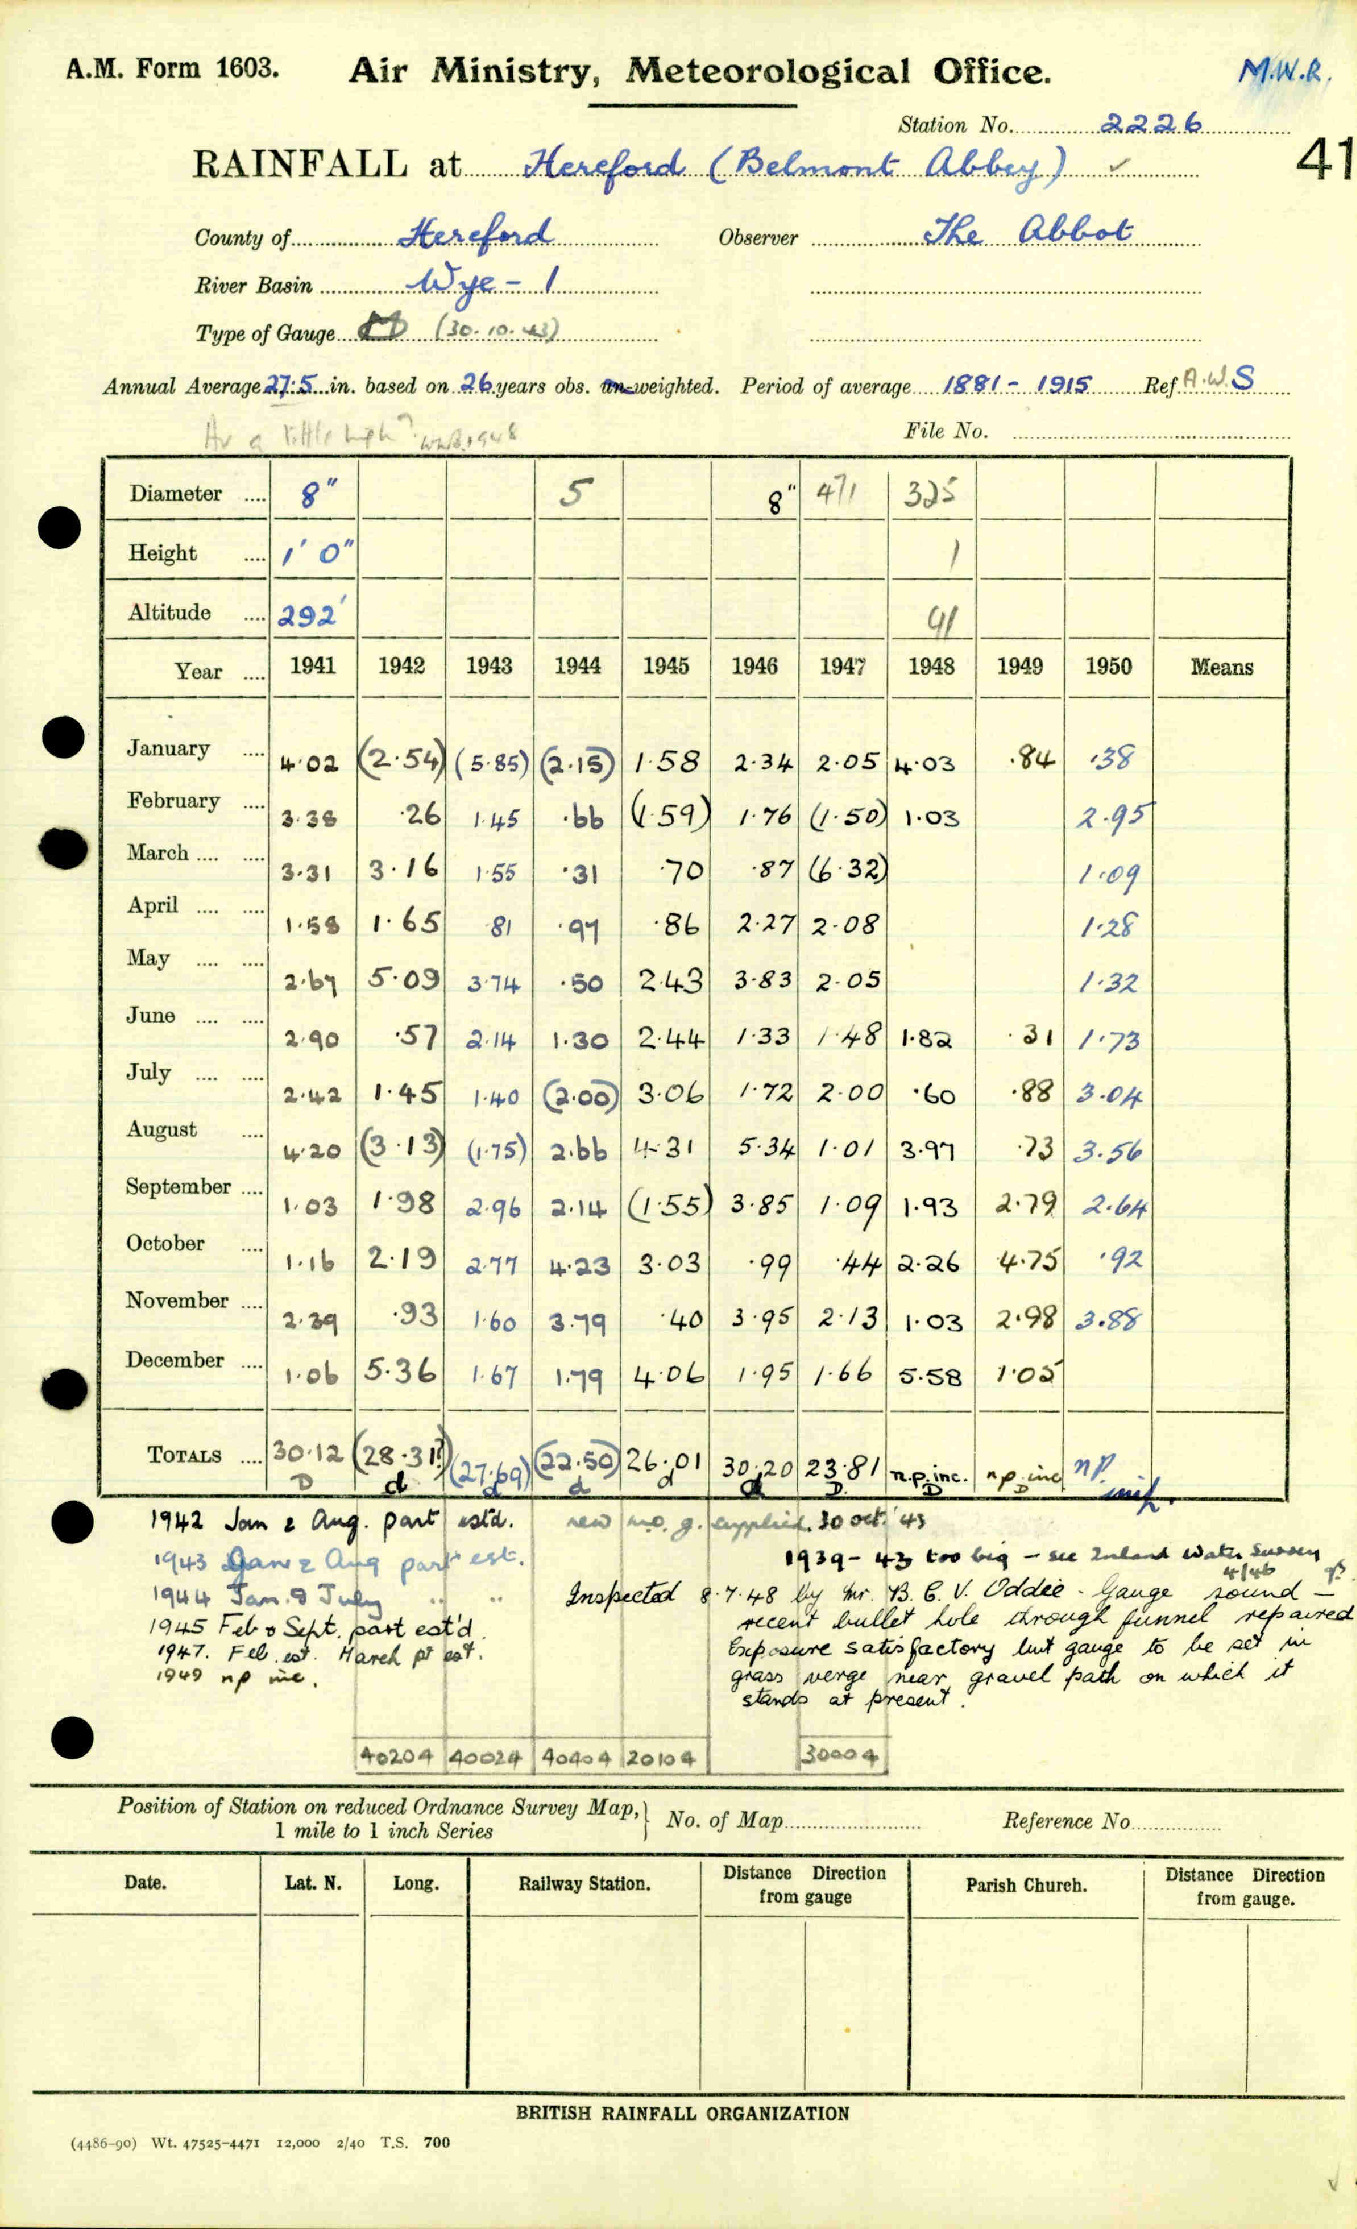 A.M. Form 1603. Air Ministry, Meteorological Office. M.W.R.
Station No. 2226
RAINFALL at Hereford (Belmont Abbey) ✓ 41
County of Hereford Observer The Abbot
River Basin Wye - 1
Type of Gauge M (30.10.43)
Annual Average 27.5 in. based on 26 years obs. un-weighted. Period of average 1881 - 1915 Ref A.W.S
Av a little high? 1948
File No.
Diameter .... 8" 5 8" 471 325
Height .... 1' 0" 1
Altitude .... 292' 91
Year .... 1941 1942 1943 1944 1945 1946 1947 1948 1949 1950 Means
January .... 4.02 (2.54) (5.85) (2.15) 1.58 2.34 2.05 4.03 .84 .38
February .... 3.38 .26 1.45 .66 (1.59) 1.76 (1.50) 1.03 2.95
March .... .... 3.31 3.16 1.55 .31 .70 .87 (6.32) 1.09
April .... .... 1.58 1.65 .81 .97 .86 2.27 2.08 1.28
May .... .... 2.67 5.09 3.74 .50 2.43 3.83 2.05 1.32
June .... .... 2.90 .57 2.14 1.30 2.44 1.33 1.48 1.82 .31 1.73
July .... .... 2.42 1.45 1.40 (2.00) 3.06 1.72 2.00 .60 .88 3.04
August .... 4.20 (3.13) (1.75) 2.66 4.31 5.34 1.01 3.97 .73 3.56
September .... 1.03 1.98 2.96 2.14 (1.55) 3.85 1.09 1.93 2.79 2.64
October .... 1.16 2.19 2.77 4.23 3.03 .99 .44 2.26 4.75 .92
November .... 2.39 .93 1.60 3.79 .40 3.95 2.13 1.03 2.98 3.88
December .... 1.06 5.36 1.67 1.79 4.06 1.95 1.66 5.58 1.05
TOTALS .... 30.12 (28.31?) (27.69) (22.50) 26.01 30.20 23.81 n.p. inc. n p inc np
D d d d d d D. D D inc.
1942 Jan & Aug. part est'd. new m.o. g. supplied. 30 oct. '43
1943 Jan & Aug part est. 1939 - 43 too big - see Inland Water Survey 4/46
1944 Jan. & July " " Inspected 8.7.48 by Mr. B. C. V. Oddie - Gauge sound -
1945 Feb & Sept. part est'd. recent bullet hole through funnel repaired
1947. Feb. est. March pt est. Exposure satisfactory but gauge to be set in
1949 np inc. grass verge near gravel path on which it
stands at present.
40204 40024 40404 20104 30004
Position of Station on reduced Ordnance Survey Map, } No. of Map Reference No
1 mile to 1 inch Series
Date. Lat. N. Long. Railway Station. Distance Direction from gauge Parish Church. Distance Direction from gauge.
BRITISH RAINFALL ORGANIZATION
(4486-90) Wt. 47525-4471 12,000 2/40 T.S. 700